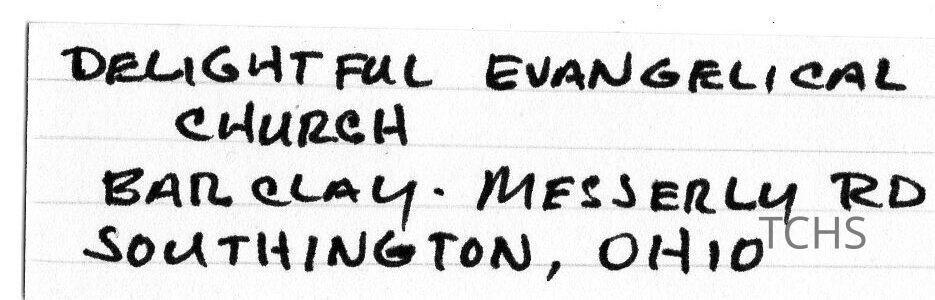 DELIGHTFUL EVANGELICAL
CHURCH
BARCLAY. MESSERLY RD
SOUTHINGTON, OHIO
TCHS